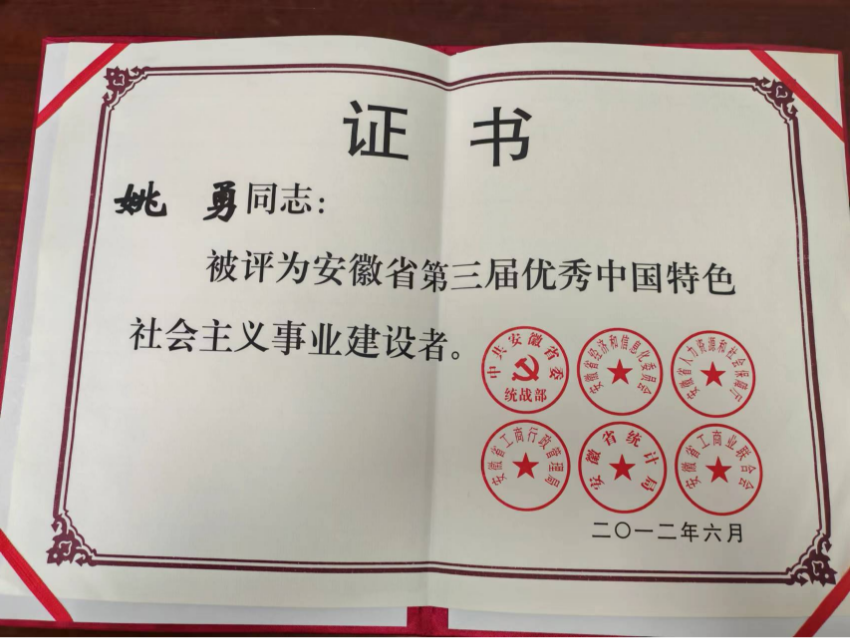 证 书
姚 勇同志：
被评为安徽省第三届优秀中国特色
社会主义事业建设者。
中共安徽省委
统战部
安徽省经济和信息化委员会
安徽省人力资源和社会保障厅
安徽省工商行政管理局
安徽省统计局
安徽省工商业联合会
二〇一二年六月